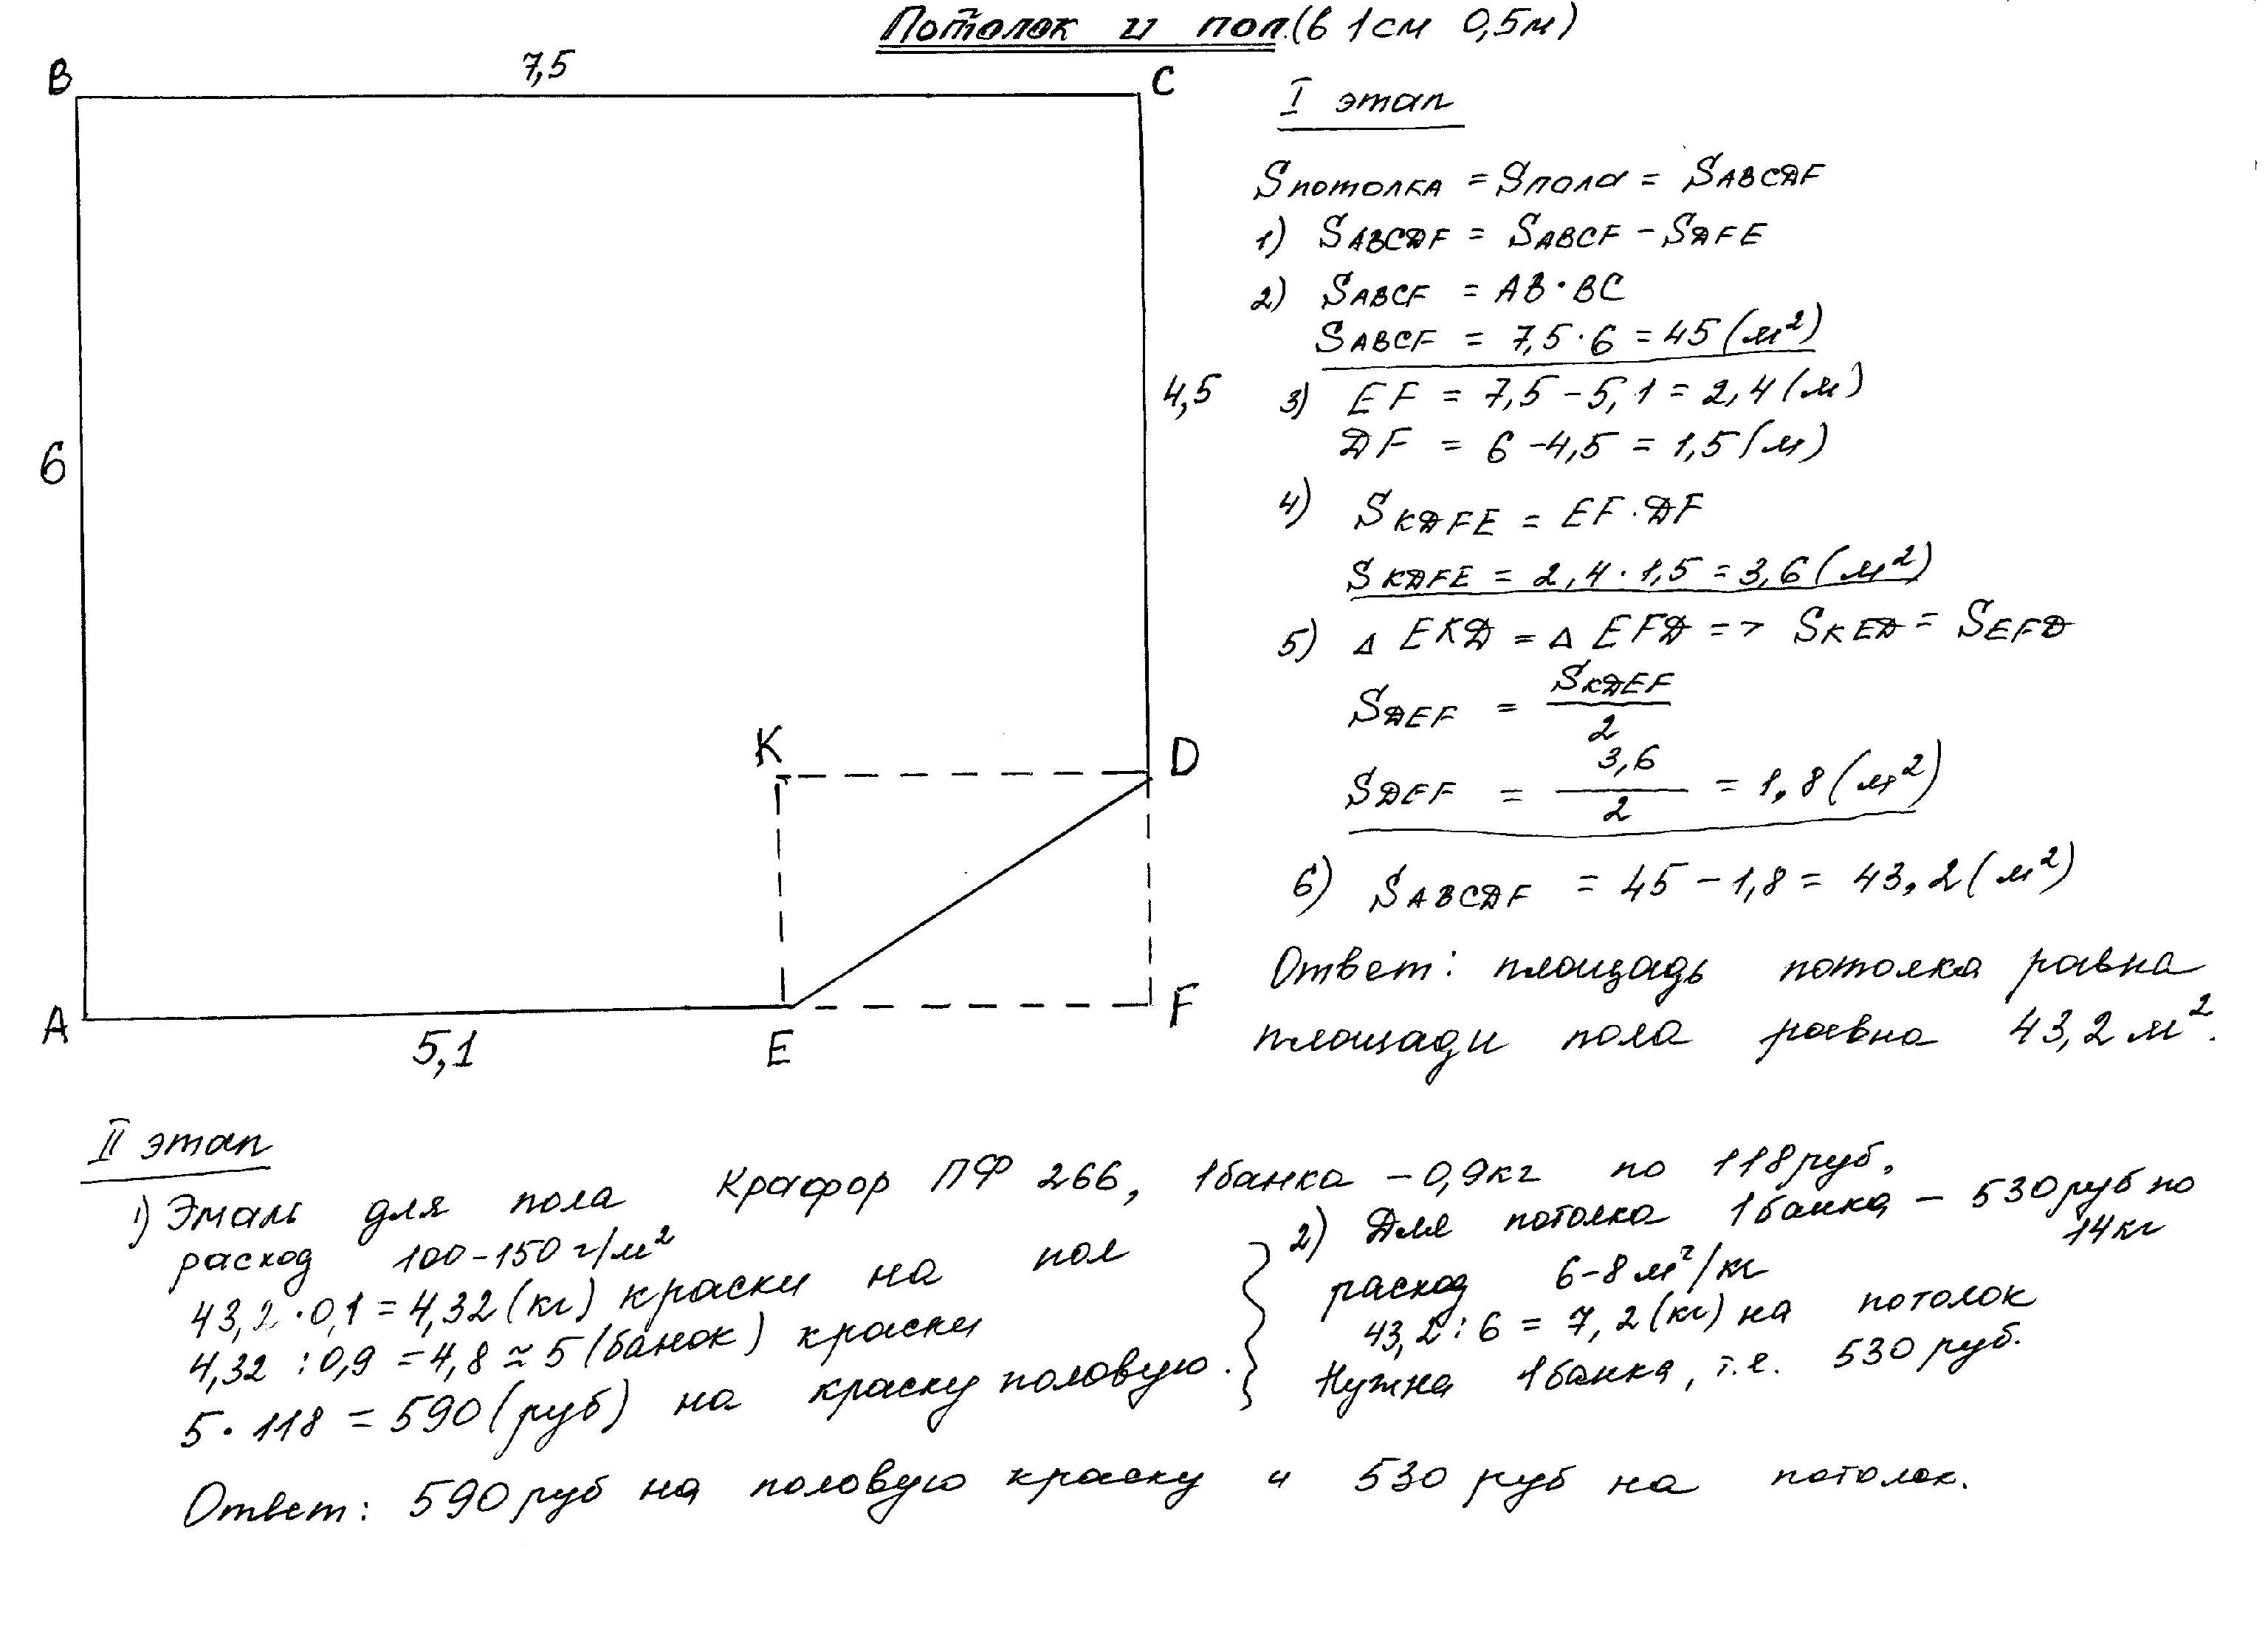 Потолок и пол (в 1см 0,5м)
B
7,5
C
6
4,5
K
D
A
5,1
E
F
I этап
Sпотолка = Sпола = SABCDF
1) SABCDF = SABCF - SDFE
2) SABCF = AB·BC
SABCF = 7,5·6 = 45 (м²)
3) EF = 7,5 - 5,1 = 2,4 (м)
DF = 6 - 4,5 = 1,5 (м)
4) SKDFE = EF·DF
SKDFE = 2,4·1,5 = 3,6 (м²)
5) △ EKD = △ EFD => SKED = SEFD
SDEF = SKDEF / 2
SDEF = 3,6 / 2 = 1,8 (м²)
6) SABCDF = 45 - 1,8 = 43,2 (м²)
Ответ: площадь потолка равна
площади пола равна 43,2 м².
II этап
1) Эмаль для пола Крафор ПФ 266, 1банка - 0,9кг по 118руб,
расход 100-150 г/м²
43,2·0,1 = 4,32 (кг) краски на пол
4,32 : 0,9 = 4,8 ≈ 5 (банок) краски
5·118 = 590 (руб) на краску половую.
2) Для потолка 1банка - 530руб по
14кг
расход 6-8 м²/кг
43,2 : 6 = 7,2 (кг) на потолок
Нужна 1банка, т.е. 530 руб.
Ответ: 590руб на половую краску и 530 руб на потолок.